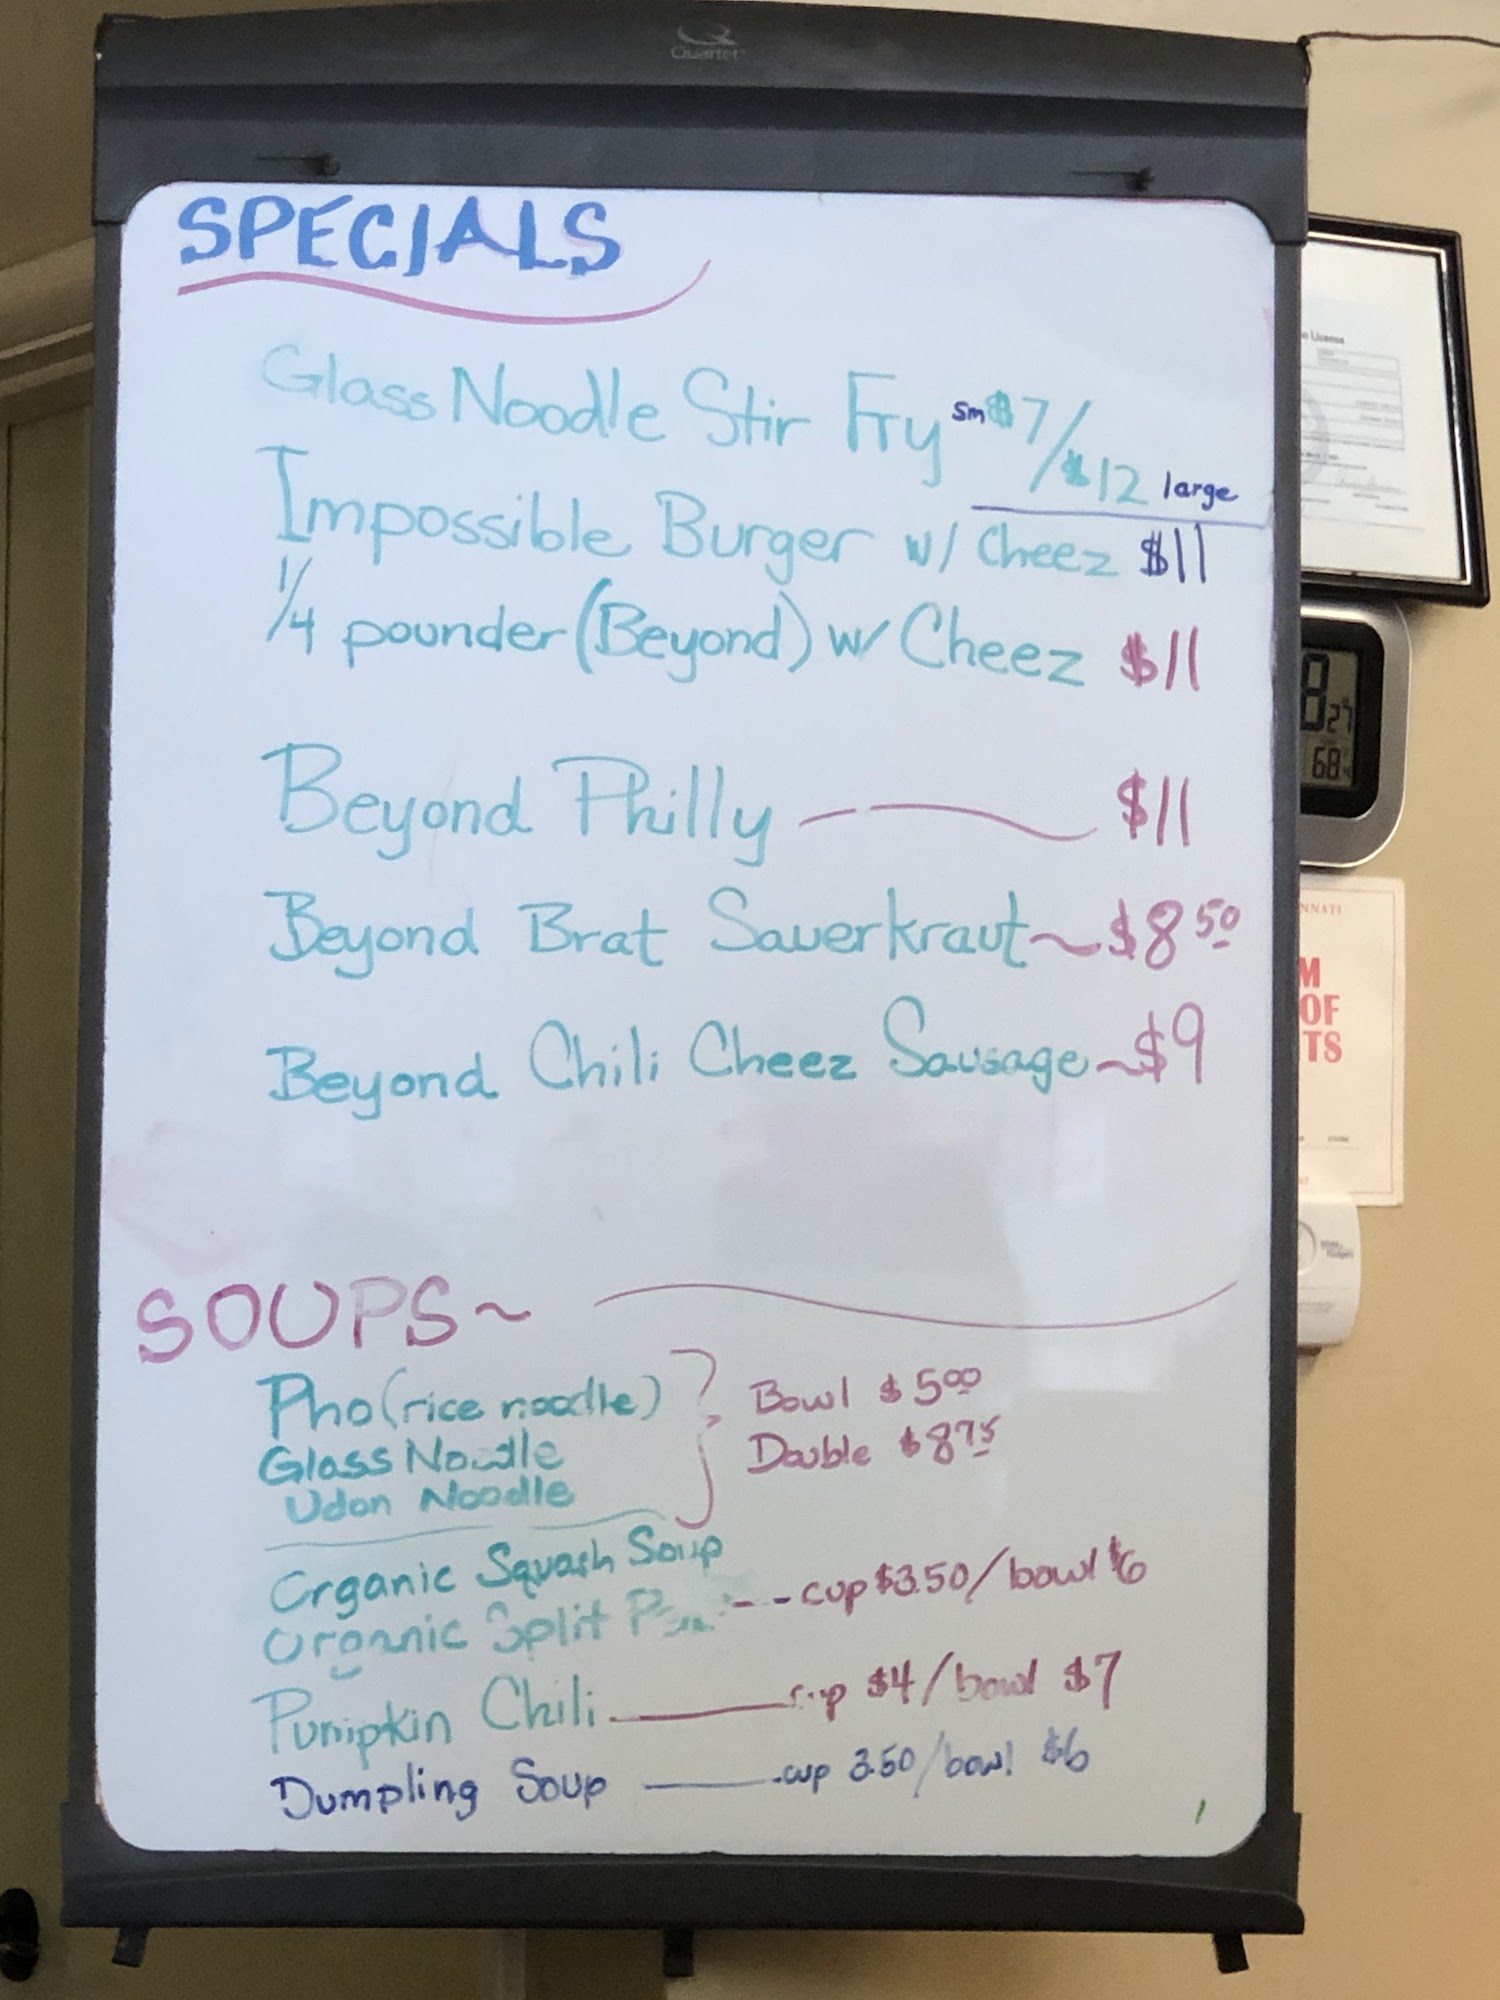 Quartet
SPECIALS
Glass Noodle Stir Fry sm $7/
$12 large
Impossible Burger w/ Cheez $11
1/4 pounder (Beyond) w/ Cheez $11
Beyond Philly $11
Beyond Brat Sauerkraut ~ $8 50
Beyond Chili Cheez Sausage ~ $9
SOUPS ~
Pho (rice noodle) Bowl $5 00
Glass Noodle Double $8 75
Udon Noodle
Organic Squash Soup
Organic Split -- cup $3.50/bowl $6
Pumpkin Chili cup $4/bowl $7
Dumpling Soup cup 3.50/bowl $6
License
8 27
68
NNATI
M
OF
TS